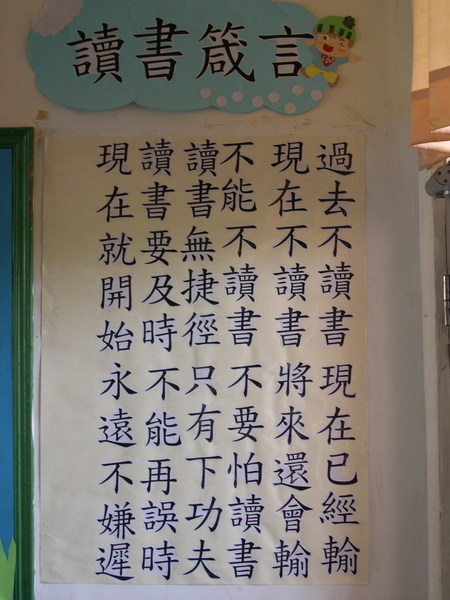 讀書箴言
過去不讀書 現在已經輸
現在不讀書 將來還會輸
不能不讀書 不要怕讀書
讀書無捷徑 只有下功夫
讀書要及時 不能再誤時
現在就開始 永遠不嫌遲